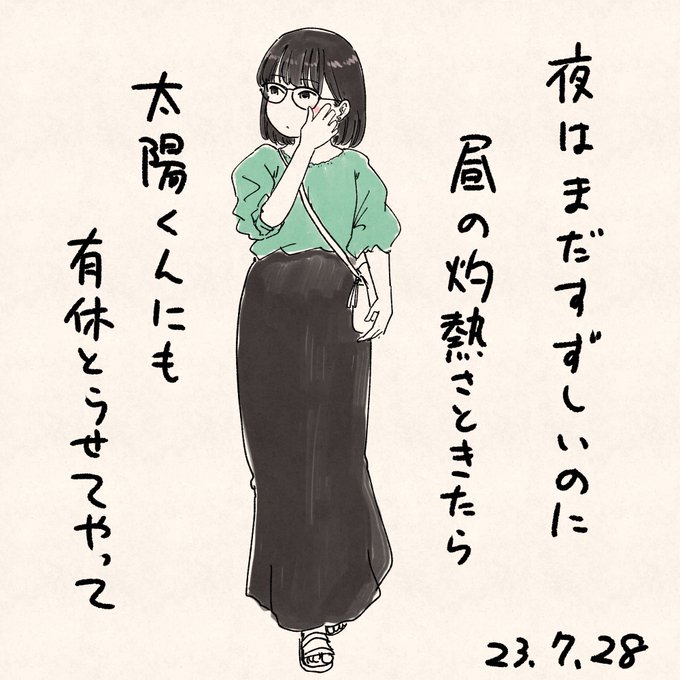 夜はまだすずしいのに
昼の灼熱さときたら
太陽くんにも
有休とらせてやって
23.7.28